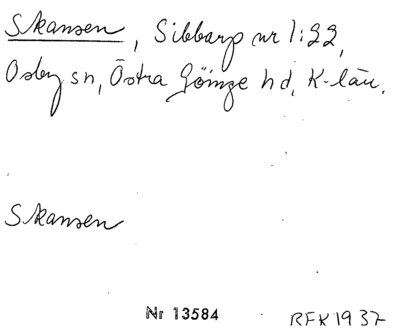 Skansen, Sibbarp nr 1:22,
Osby sn, Östra Göinge hd, K-län.
Skansen
Nr 13584
RFK 1937